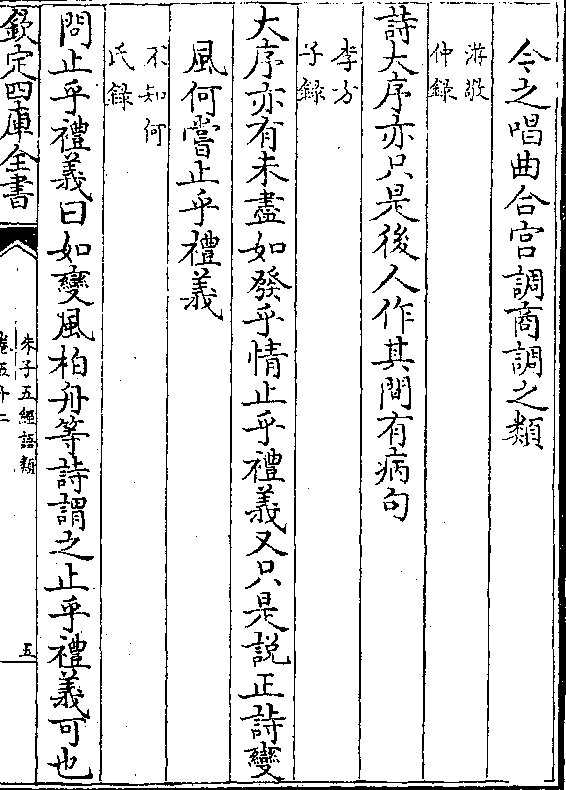 今之唱曲合宫調商調之類
游敬
仲錄
詩大序亦只是後人作其間有病句
李方
子錄
大序亦有未盡如發乎情止乎禮義又只是説正詩變
風何嘗止乎禮義
不知何
氏錄
問止乎禮義曰如變風柏舟等詩謂之止乎禮義可也
欽定四庫全書
朱子五經語類
卷五十二
五